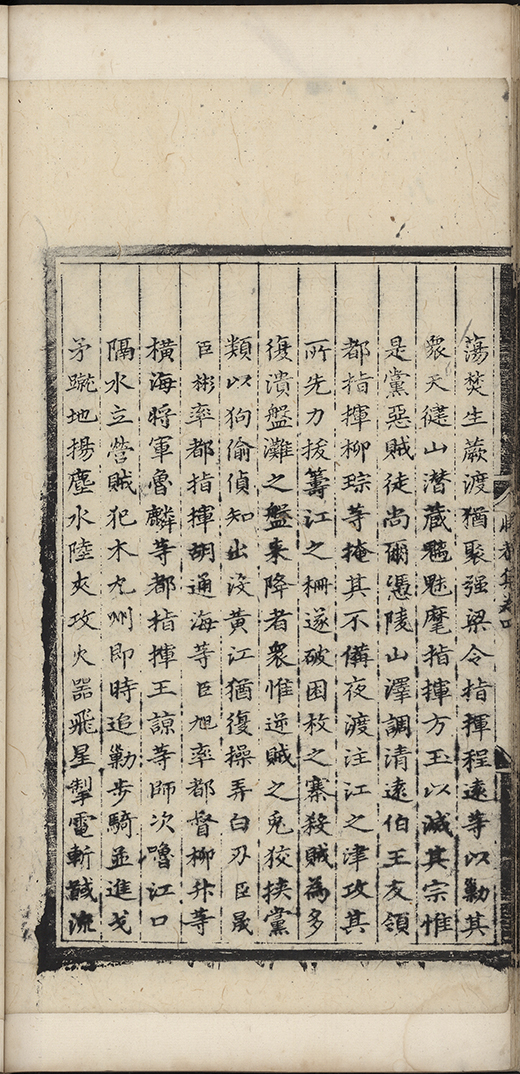 蕩焚生蕨渡猶聚强梁令指揮程遠等以勦其
衆天健山潜藏魑魅麾指揮方玉以滅其宗惟
是黨惡賊徒尚爾憑陵山澤調清遠伯王友領
都指揮柳琮等掩其不備夜渡注江之津攻其
所先力拔籌江之柵遂破困枚之寨殺賊為多
復潰盤灘之盤来降者衆惟逆賊之兎狡挟黨
類以狗偷偵知出没黄江猶復操弄白刃臣晟
臣彬率都指揮胡通海等臣旭率都督柳升等
橫海將軍魯麟等都指揮王諒等師次嚕江口
隔水立營賊犯木丸州即時追勦步騎並進戈
矛蹴地揚塵水陸夾攻火器飛星掣電斬馘流